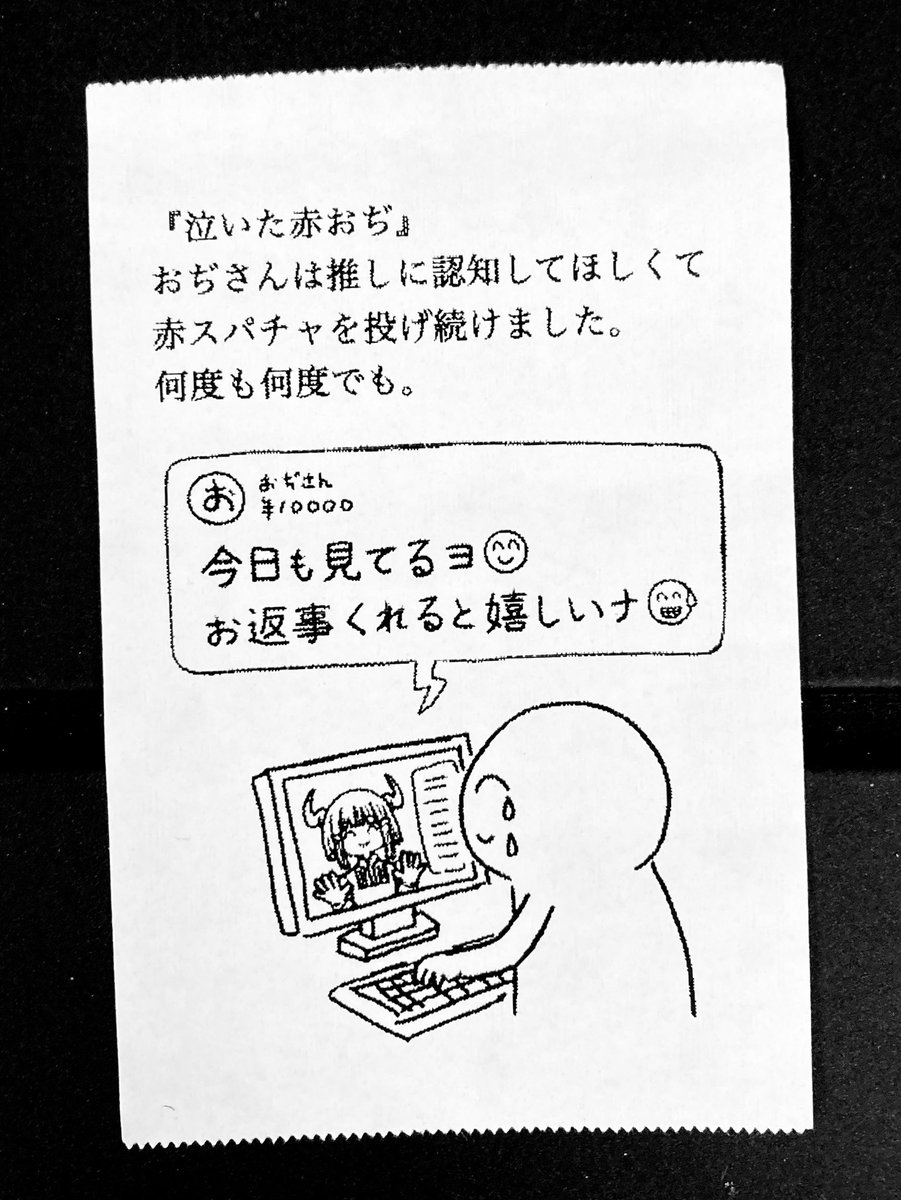 『泣いた赤おぢ』
おぢさんは推しに認知してほしくて
赤スパチャを投げ続けました。
何度も何度でも。
お
おぢさん
¥10000
今日も見てるヨ😊
お返事くれると嬉しいナ😅